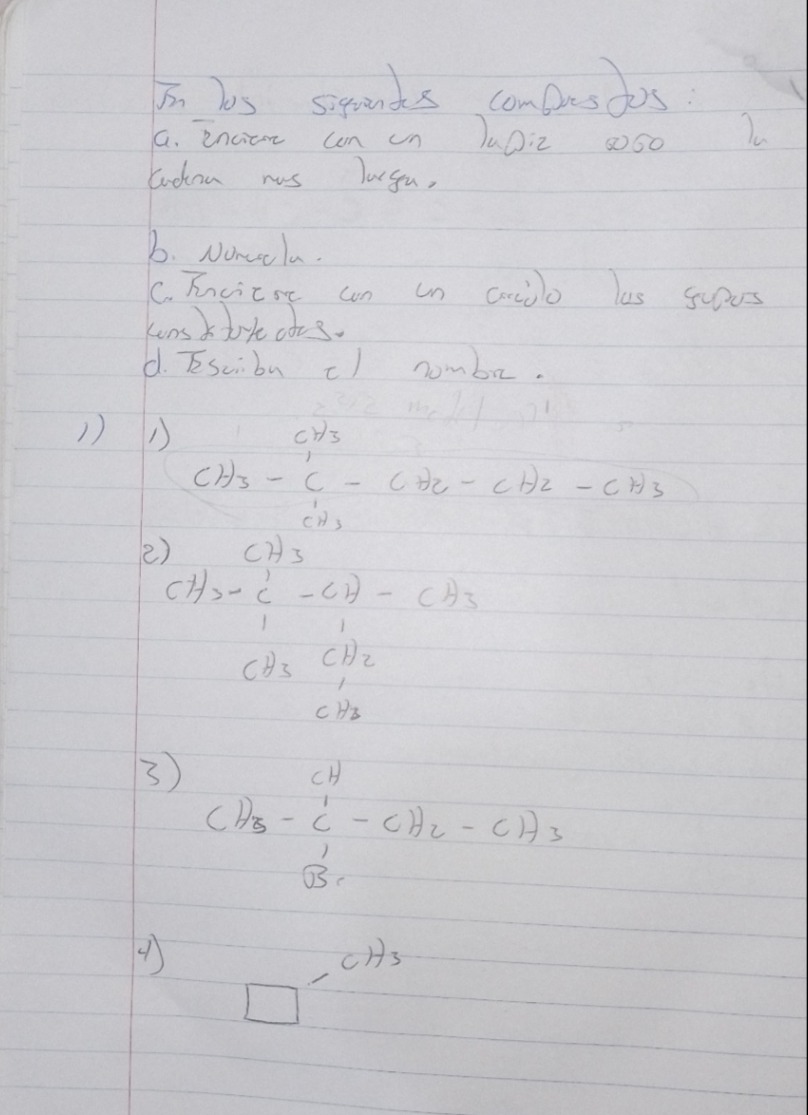 En los siguientes compuestos:
a. Encierre con un lapiz rojo la
cadena mas larga.
b. Numerela.
c. Encierre con un circulo los grupos
d. Escriba el nombre.
1) 1) CH3
CH3 - C - CH2 - CH2 - CH3
CH3
2) CH3
CH3 - C - CH - CH3
CH3 CH2
CH3
3) CH
CH3 - C - CH2 - CH3
Br
4) CH3